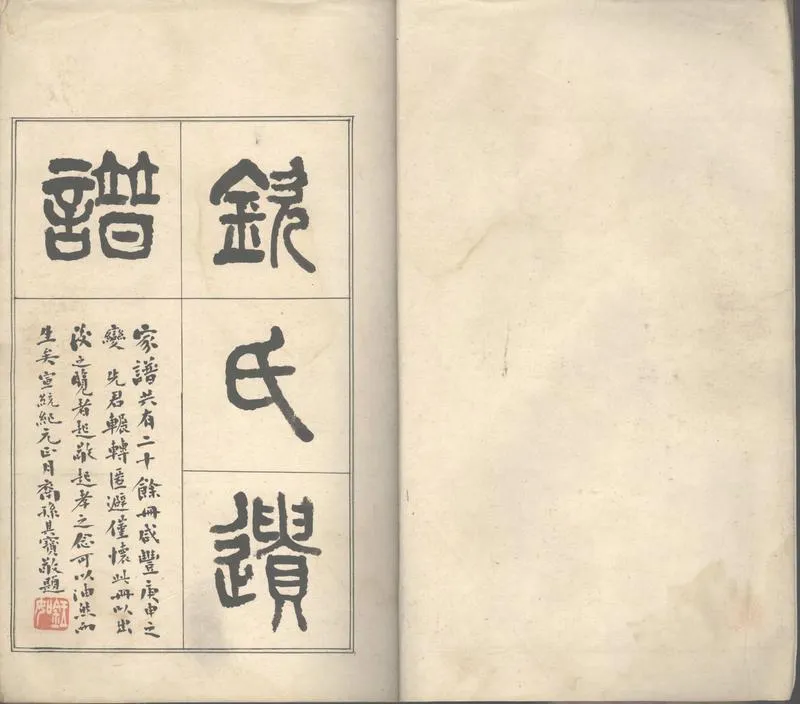 欽氏遺
譜
家譜共有二十餘冊咸豐庚申之
變 先君輾轉匿避僅懷此冊以出
後之覽者起敬起孝之念可以油然而
生矣宣統紀元正月裔孫其寶敬題